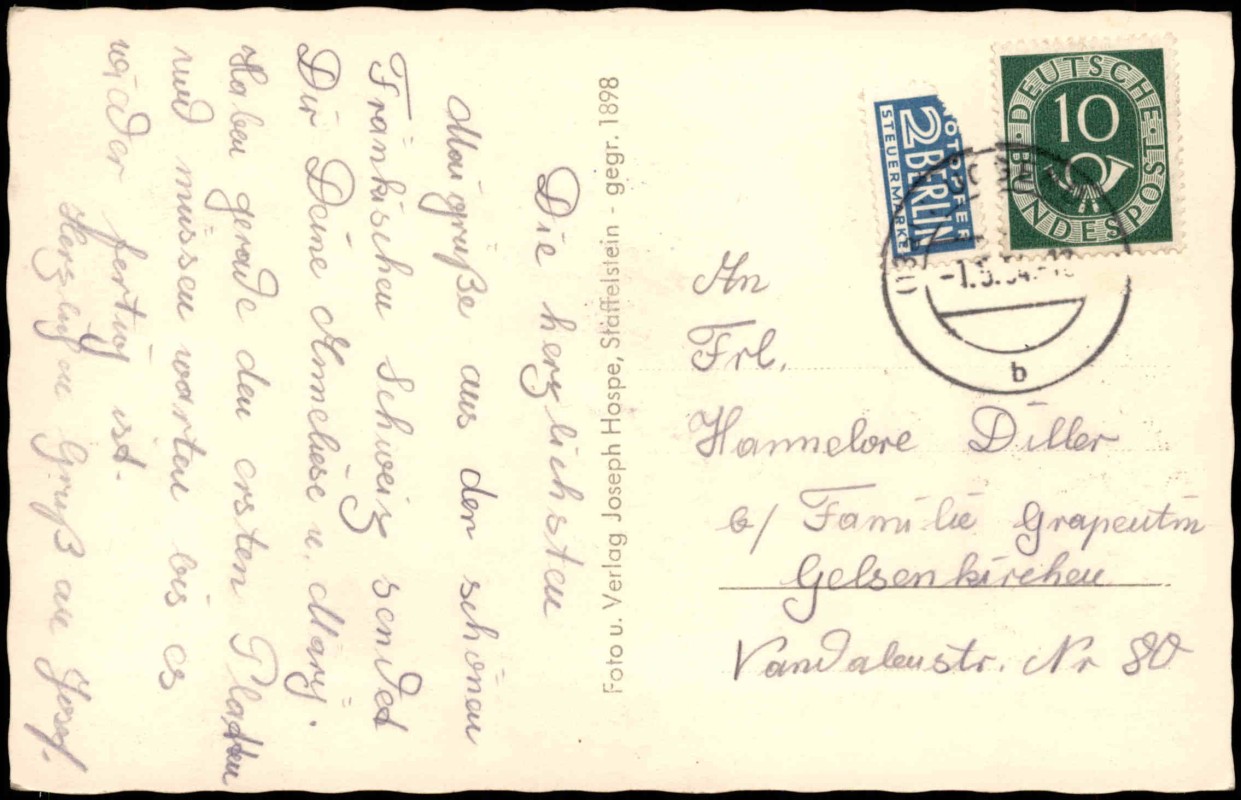 Die herzlichsten
Maigrüße aus der schönen
Fränkischen Schweiz sendet
Dir Deine Anneliese u. Mary.
Haben gerade den ersten Platten
und müssen warten bis es
wieder fertig ist.
Herzlichen Gruß an Josef.
Foto u. Verlag Joseph Hospe, Staffelstein - gegr. 1898
NOTOPFER
2 BERLIN
STEUERMARKE
DEUTSCHE BUNDESPOST
10
-1.5.54.-18
b
An
Frl.
Hannelore Diller
b/ Familie Grapentin
Gelsenkirchen
Vandalenstr. Nr 80